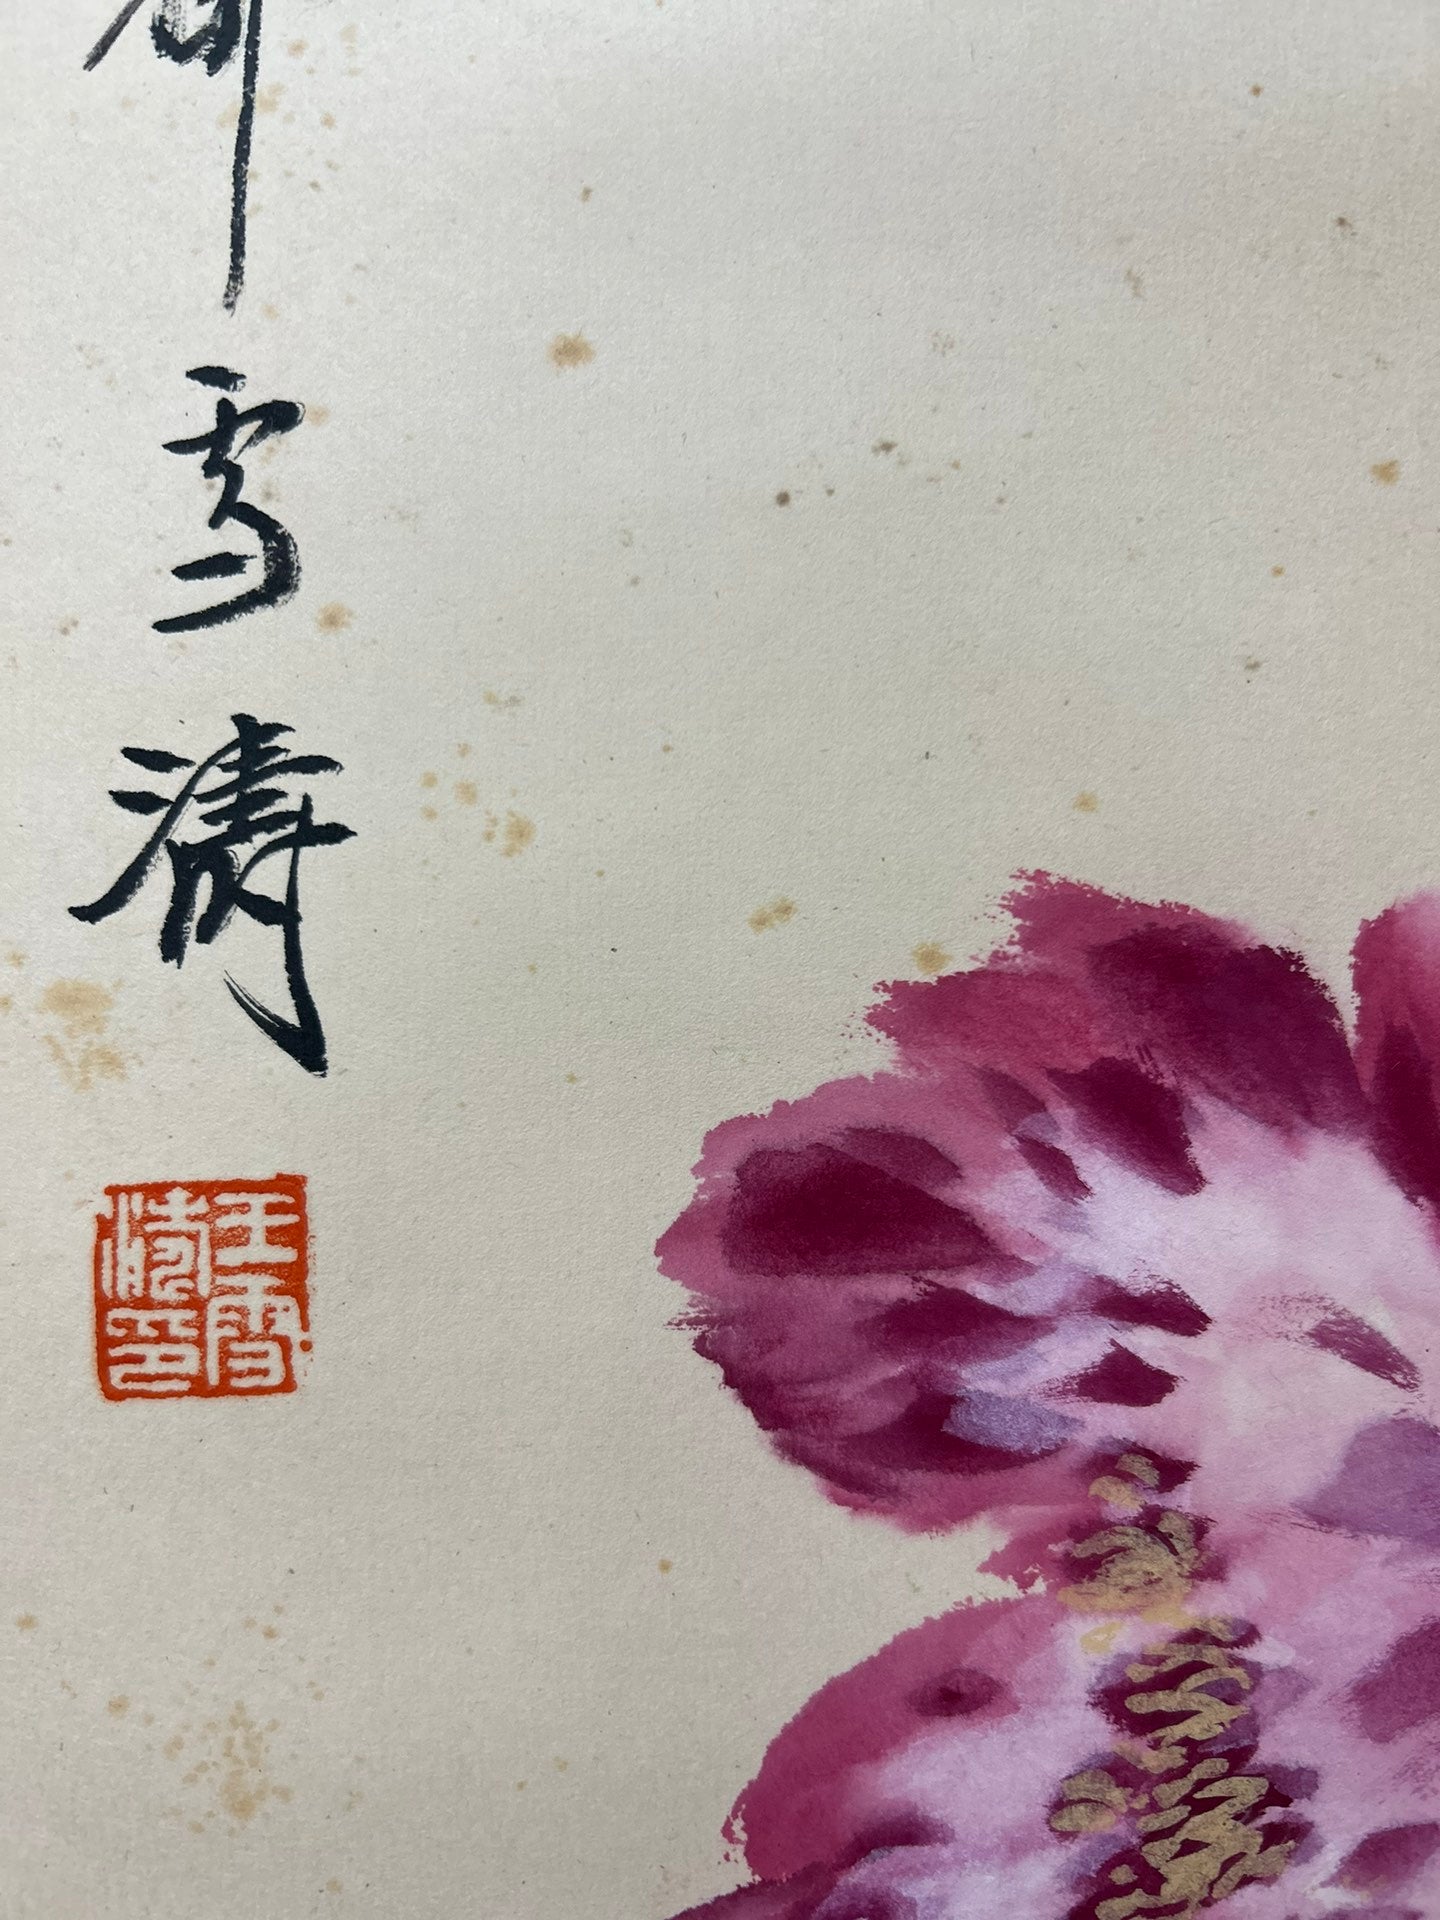 雪濤
王雪
涛印